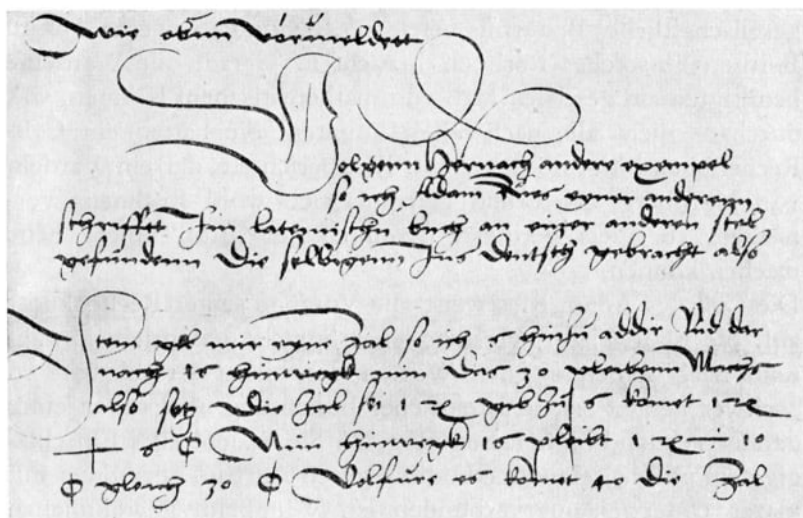 Wie oben vermeldet
Volgenn Hernach andere exempel
So ich Adam Ries eyner anderenn
schrifft Im lateinischn buch an eynen andern
gefundenn Die selbigenn Ins deutsch gebracht also
Item gib mir eyne zal so ich 6 hinzu addir Vnd dar
nach 16 hinwegk nim das 30 pleiben Machs
also setz die zal sey 1 x gib zu 6 komet 1 x
+ 6 ϕ Nim hinwegk 16 pleibt 1 x ÷ 10
ϕ gleich 30 ϕ Volfure es komet 40 die zal